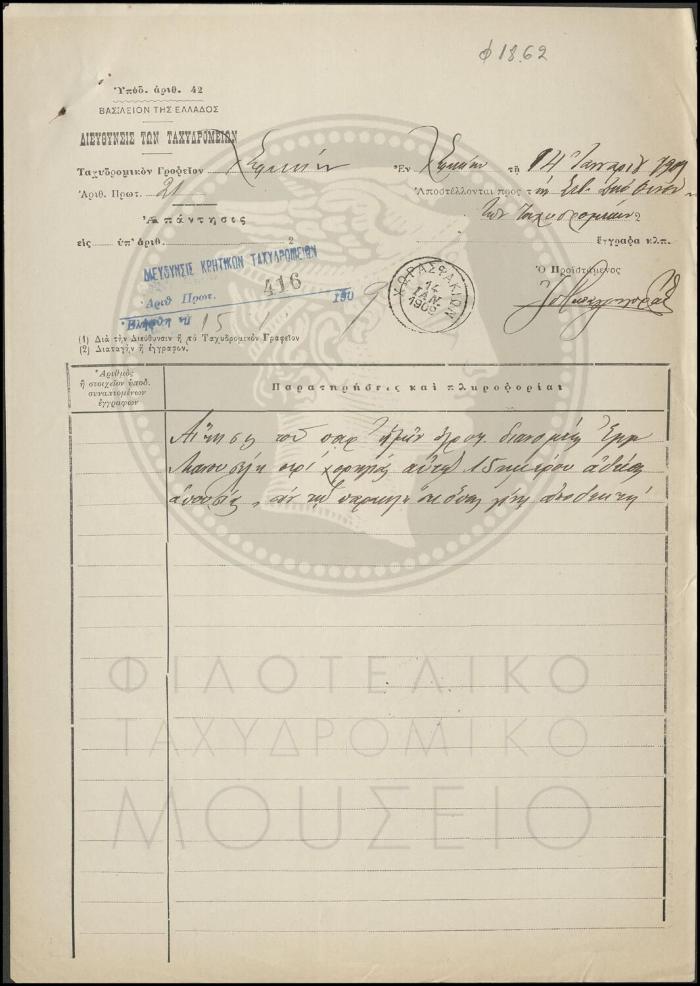 Φ 18.62
Ὑπόδ. ἀριθ. 42
ΒΑΣΙΛΕΙΟΝ ΤΗΣ ΕΛΛΑΔΟΣ
ΔΙΕΥΘΥΝΣΙΣ ΤΩΝ ΤΑΧΥΔΡΟΜΕΙΩΝ
Ταχυδρομικὸν Γραφεῖον Χ. Σφακίων
Ἀριθ. Πρωτ. 21
Ἀπάντησις
εἰς ὑπ' ἀριθ. 2
Ἐν Χ Σφακίοις τῇ 14 Ἰανουαρίου 1909
Ἀποστέλλονται πρὸς τ
τῶν Ταχυδρομείων
ἔγγραφα κλπ.
Ὁ Προϊστάμενος
ΔΙΕΥΘΥΝΣΙΣ ΚΡΗΤΙΚΩΝ ΤΑΧΥΔΡΟΜΕΙΩΝ
Ἀριθ. Πρωτ. 416 190 9
Ἐλήφθη τῇ 15
ΧΩΡΑ ΣΦΑΚΙΩΝ
14
ΙΑΝ.
(1) Διὰ τὴν Διεύθυνσιν ἢ τὸ Ταχυδρομικὸν Γραφεῖον
(2) Διαταγὴν ἢ ἔγγραφον.
Ἀριθμὸς
ἢ στοιχεῖον ὑποδ.
συναπτομένων
ἐγγράφων
Παρατηρήσεις καὶ πληροφορίαι
Αἴτησις τοῦ παρ' ἡμῖν ἀγροτ. διανομέως Ἐμμ
περὶ χορηγήσεως αὐτῷ 15ημέρου ἀδείας
ἀπουσίας
ΦΙΛΟΤΕΛΙΚΟ
ΤΑΧΥΔΡΟΜΙΚΟ
ΜΟΥΣΕΙΟ